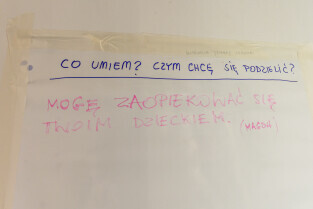 CO UMIEM? CZYM CHCĘ SIĘ PODZIELIĆ?
MOGĘ ZAOPIEKOWAĆ SIĘ
TWOIM DZIECKIEM. (MAGDA)